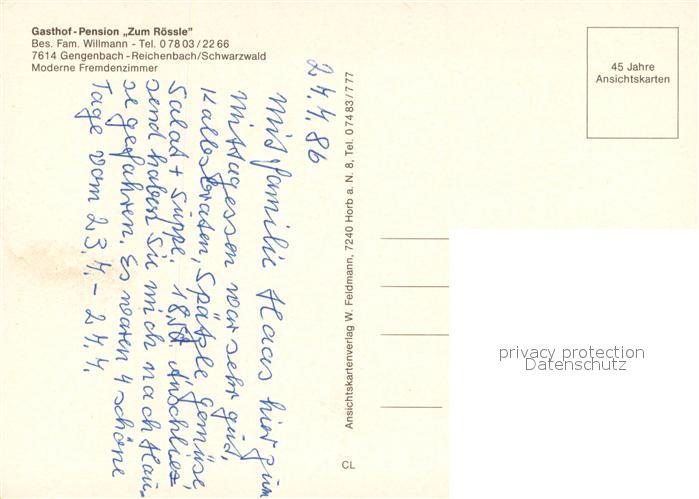 Gasthof-Pension „Zum Rössle"
Bes. Fam. Willmann - Tel. 0 78 03 / 22 66
7614 Gengenbach-Reichenbach/Schwarzwald
Moderne Fremdenzimmer
45 Jahre
Ansichtskarten
24.4.86
Mit Familie Haas hier zum
Mittagessen war sehr gut,
Kalbsbraten, Spätzle, Gemüse,
Salat + Suppe. Anschlies
send haben Sie mich nach Hau-
se gefahren. Es waren 4 schöne
Tage vom 23.4. - 27.4.
Ansichtskartenverlag W. Feldmann, 7240 Horb a. N. 8, Tel. 0 74 83 / 7 77
CL
privacy protection
Datenschutz